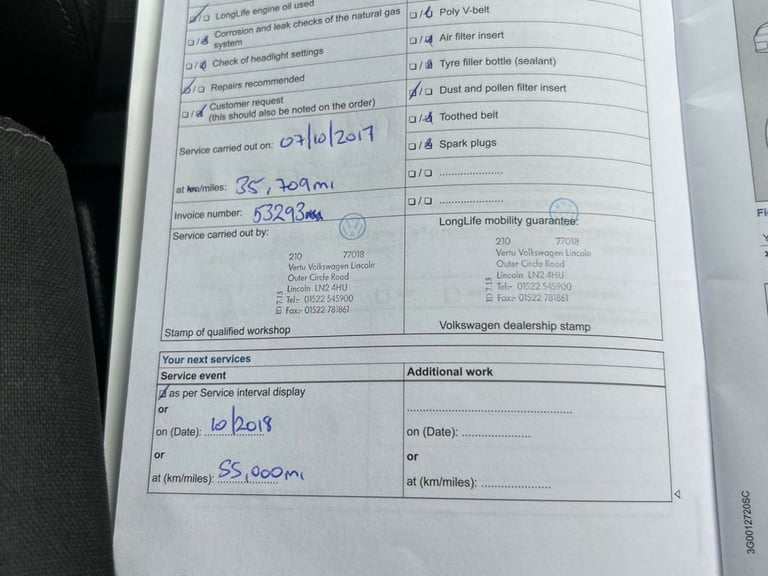 LongLife engine oil used
Corrosion and leak checks of the natural gas
system
Check of headlight settings
Repairs recommended
Customer request
(this should also be noted on the order)
Service carried out on: 07/10/2017
at km/miles: 35,709mi
Invoice number: 53293
Service carried out by:
210 77018
Vertu Volkswagen Lincoln
Outer Circle Road
Lincoln LN2 4HU
Tel:- 01522 545900
Fax:- 01522 781861
ID 7.13
Stamp of qualified workshop
Poly V-belt
Air filter insert
Tyre filler bottle (sealant)
Dust and pollen filter insert
Toothed belt
Spark plugs
LongLife mobility guarantee:
210 77018
Vertu Volkswagen Lincoln
Outer Circle Road
Lincoln LN2 4HU
Tel:- 01522 545900
Fax:- 01522 781861
ID 7.13
Volkswagen dealership stamp
Your next services
Service event
as per Service interval display
or
on (Date): 10/2018
or
at (km/miles): 55,000mi
Additional work
on (Date):
or
at (km/miles):
3G0012720SC